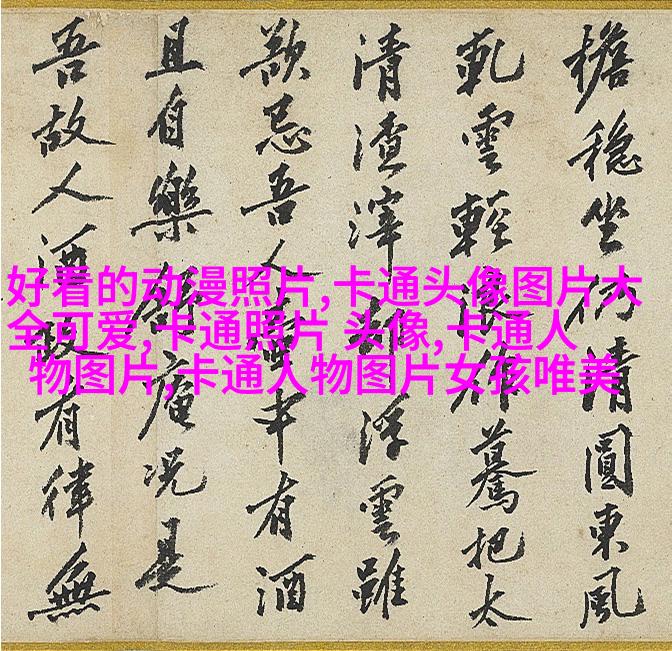 好看的动漫照片,卡通头像图片大
全可爱,卡通照片 头像,卡通人
物图片,卡通人物图片女孩唯美
檐穩坐仍清圓東風
雲輕作驀把太
清渣滓浮雲雖
忌吾人中有酒
且自樂庵况是
吾故人酒政有律無